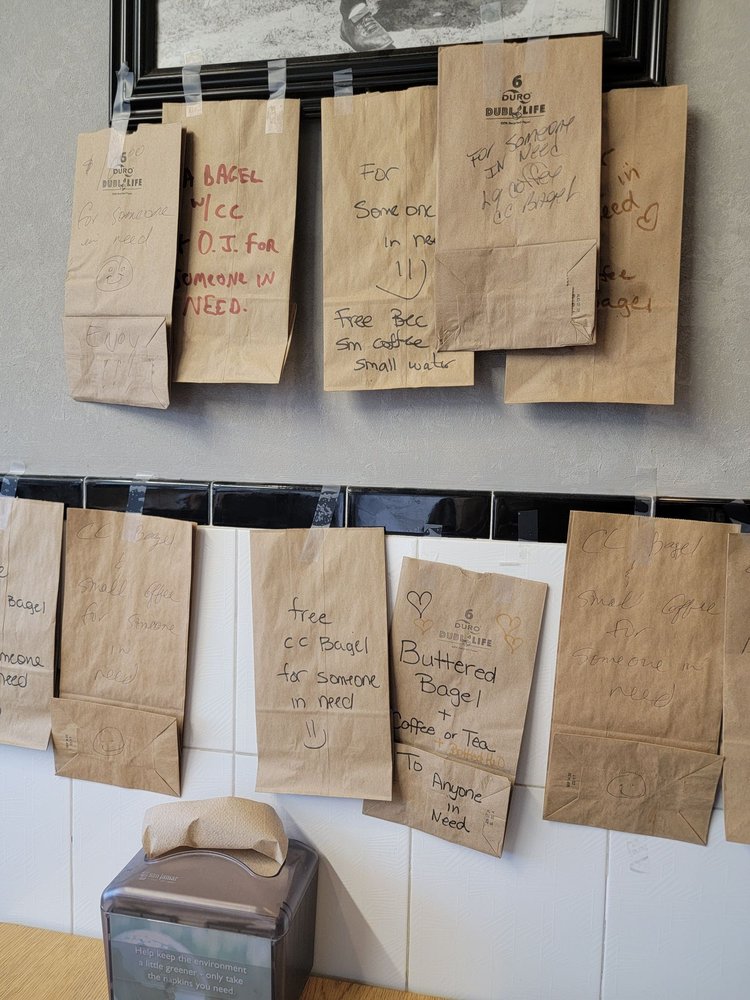 6
DURO
DUBL LIFE
for someone
in need
Enjoy
A BAGEL
w/CC
+ O.J. FOR
SOMEONE IN
NEED.
For
Someone
in nee
Free Bec
sm coffee
small water
6
DURO
DUBL LIFE
FOR SOMEONE
IN NEED
Lg coffee
CC BAGEL
in
eed
fee
Bagel
Bagel
meone
need
CC Bagel
&
Small Coffee
for Someone
in
need
free
CC Bagel
for someone
in need
6
DURO
DUBL LIFE
Buttered
Bagel
+
Coffee or Tea
To Anyone
in
Need
CC Bagel
&
Small Coffee
for
Someone in
need
san jamar
Help keep the environment
a little greener - only take
the napkins you need.